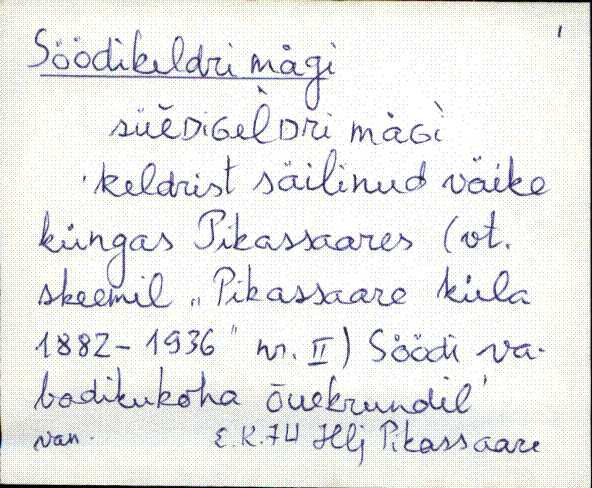 1
Söödikeldri mägi
süēDiGelDri mäGi
'keldrist säilinud väike
küngas Pikassaares (vt.
skeemil „Pikassaare küla
1882-1936" nr. II) Söödi va-
badikukoha õuekrundil'
van. E.K.74 Hlj Pikassaare